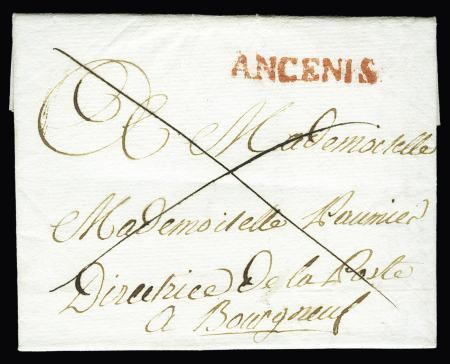 ANCENIS
A Mademoiselle
Mademoiselle Paumier
Directrice de la Poste
A Bourgneuf